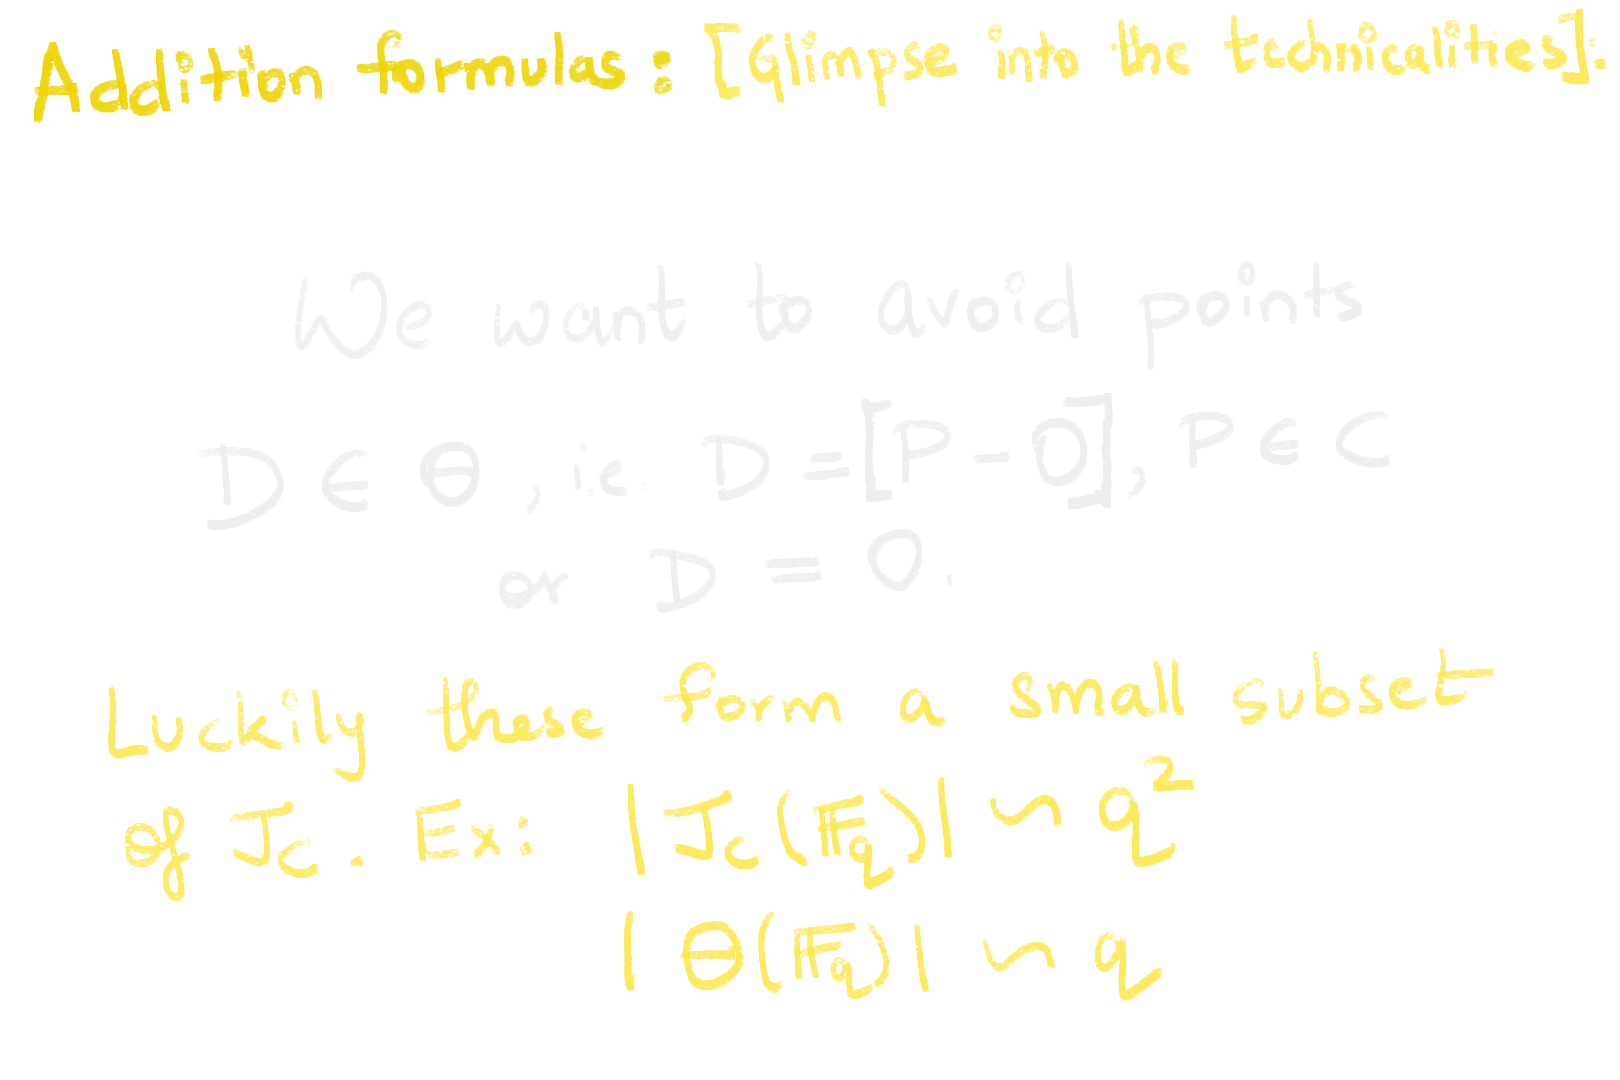 Addition formulas : [Glimpse into the technicalities].
We want to avoid points
D ∈ Θ, i.e. D = [P - O], P ∈ C
or D = O.
Luckily these form a small subset
of J_C. Ex: |J_C(𝔽_q)| ∼ q²
|Θ(𝔽_q)| ∼ q